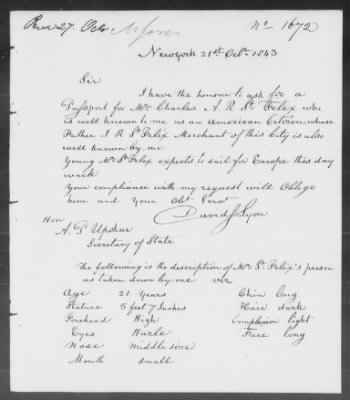 Recd 27 Octr
No 1672
New York 21st Octr 1843
Sir
I have the honour to ask for a
Passport for Mr Charles A. R. St Felix who
is well known to me as an American Citizen, whose
Father J R St Felix Merchant of this City is also
well known by me
Young Mr St Felix expects to sail for Europe this day
week
Your compliance with my request will Oblige
him and Your Obt Servt
David S Lyon
Hon
A. P. Upshur
Secretary of State
The following is the description of Mr St Felix's person
as taken down by me viz
Age 21 Years Chin long
Stature 5 feet 7 Inches Hair dark
Forehead High Complexion light
Eyes Hazle Face long
Nose middle size
Mouth small